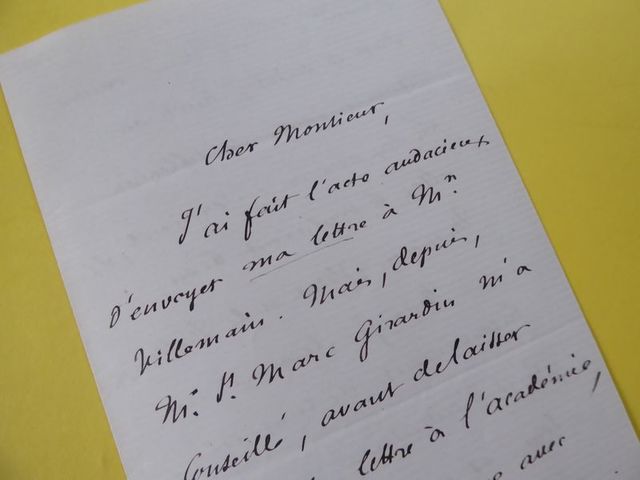 Cher Monsieur,
J'ai fait l'acte audacieux
d'envoyer ma lettre à Mr.
Villemain. Mais, depuis,
Mr. St. Marc Girardin m'a
Conseillé, avant de laisser
lettre à l'académie,
avec